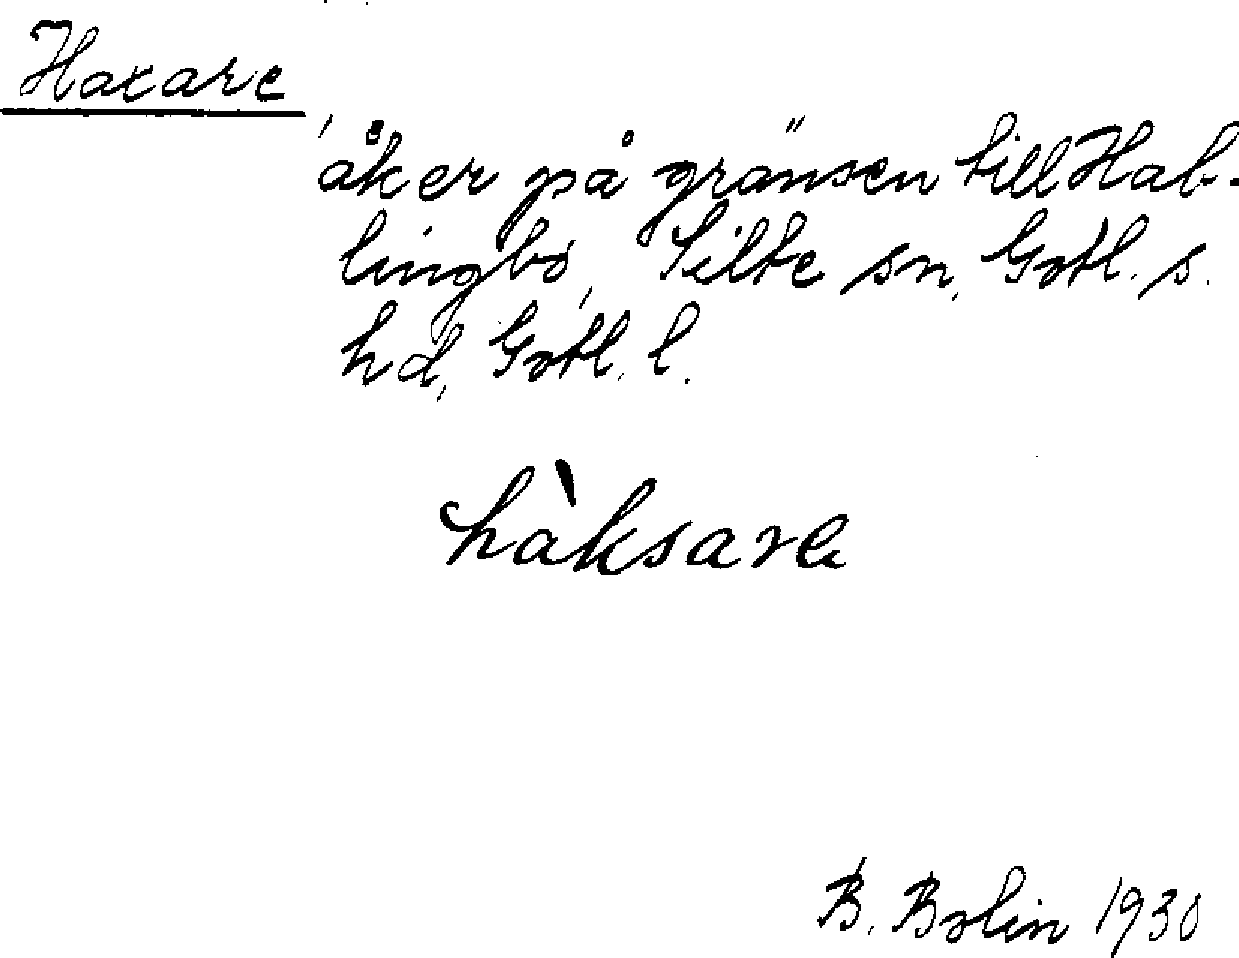 Haxare
åker på gränsen till Hab-
lingbo, Silte sn, Gotl. s.
hd, Gotl. l.
hàksara
B. Bolin 1930